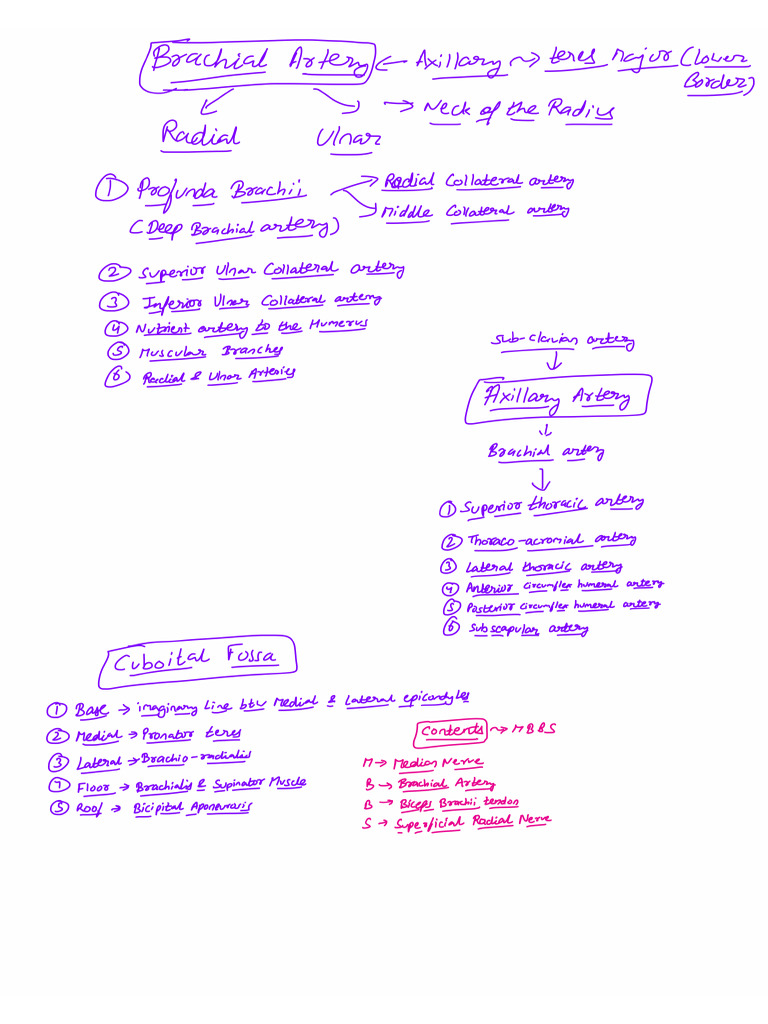 Brachial Artery ← Axillary → teres major (lower Border)
Radial Ulnar → Neck of the Radius
① Profunda Brachii → Radial Collateral artery
(Deep Brachial artery) → Middle Collateral artery
② Superior Ulnar Collateral artery
③ Inferior Ulnar Collateral artery
④ Nutrient artery to the Humerus
⑤ Muscular Branches
⑥ Radial & Ulnar Arteries
Sub-clavian artery
↓
Axillary Artery
↓
Brachial artery
↓
① Superior thoracic artery
② Thoraco-acromial artery
③ Lateral thoracic artery
④ Anterior circumflex humeral artery
⑤ Posterior circumflex humeral artery
⑥ Subscapular artery
Cuboital Fossa
① Base → imaginary Line btw Medial & Lateral epicondyles
② Medial → Pronator teres
③ Lateral → Brachio-radialis
④ Floor → Brachialis & Supinator Muscle
⑤ Roof → Bicipital Aponeurosis
Contents → MBBS
M → Median Nerve
B → Brachial Artery
B → Biceps Brachii tendon
S → Superficial Radial Nerve